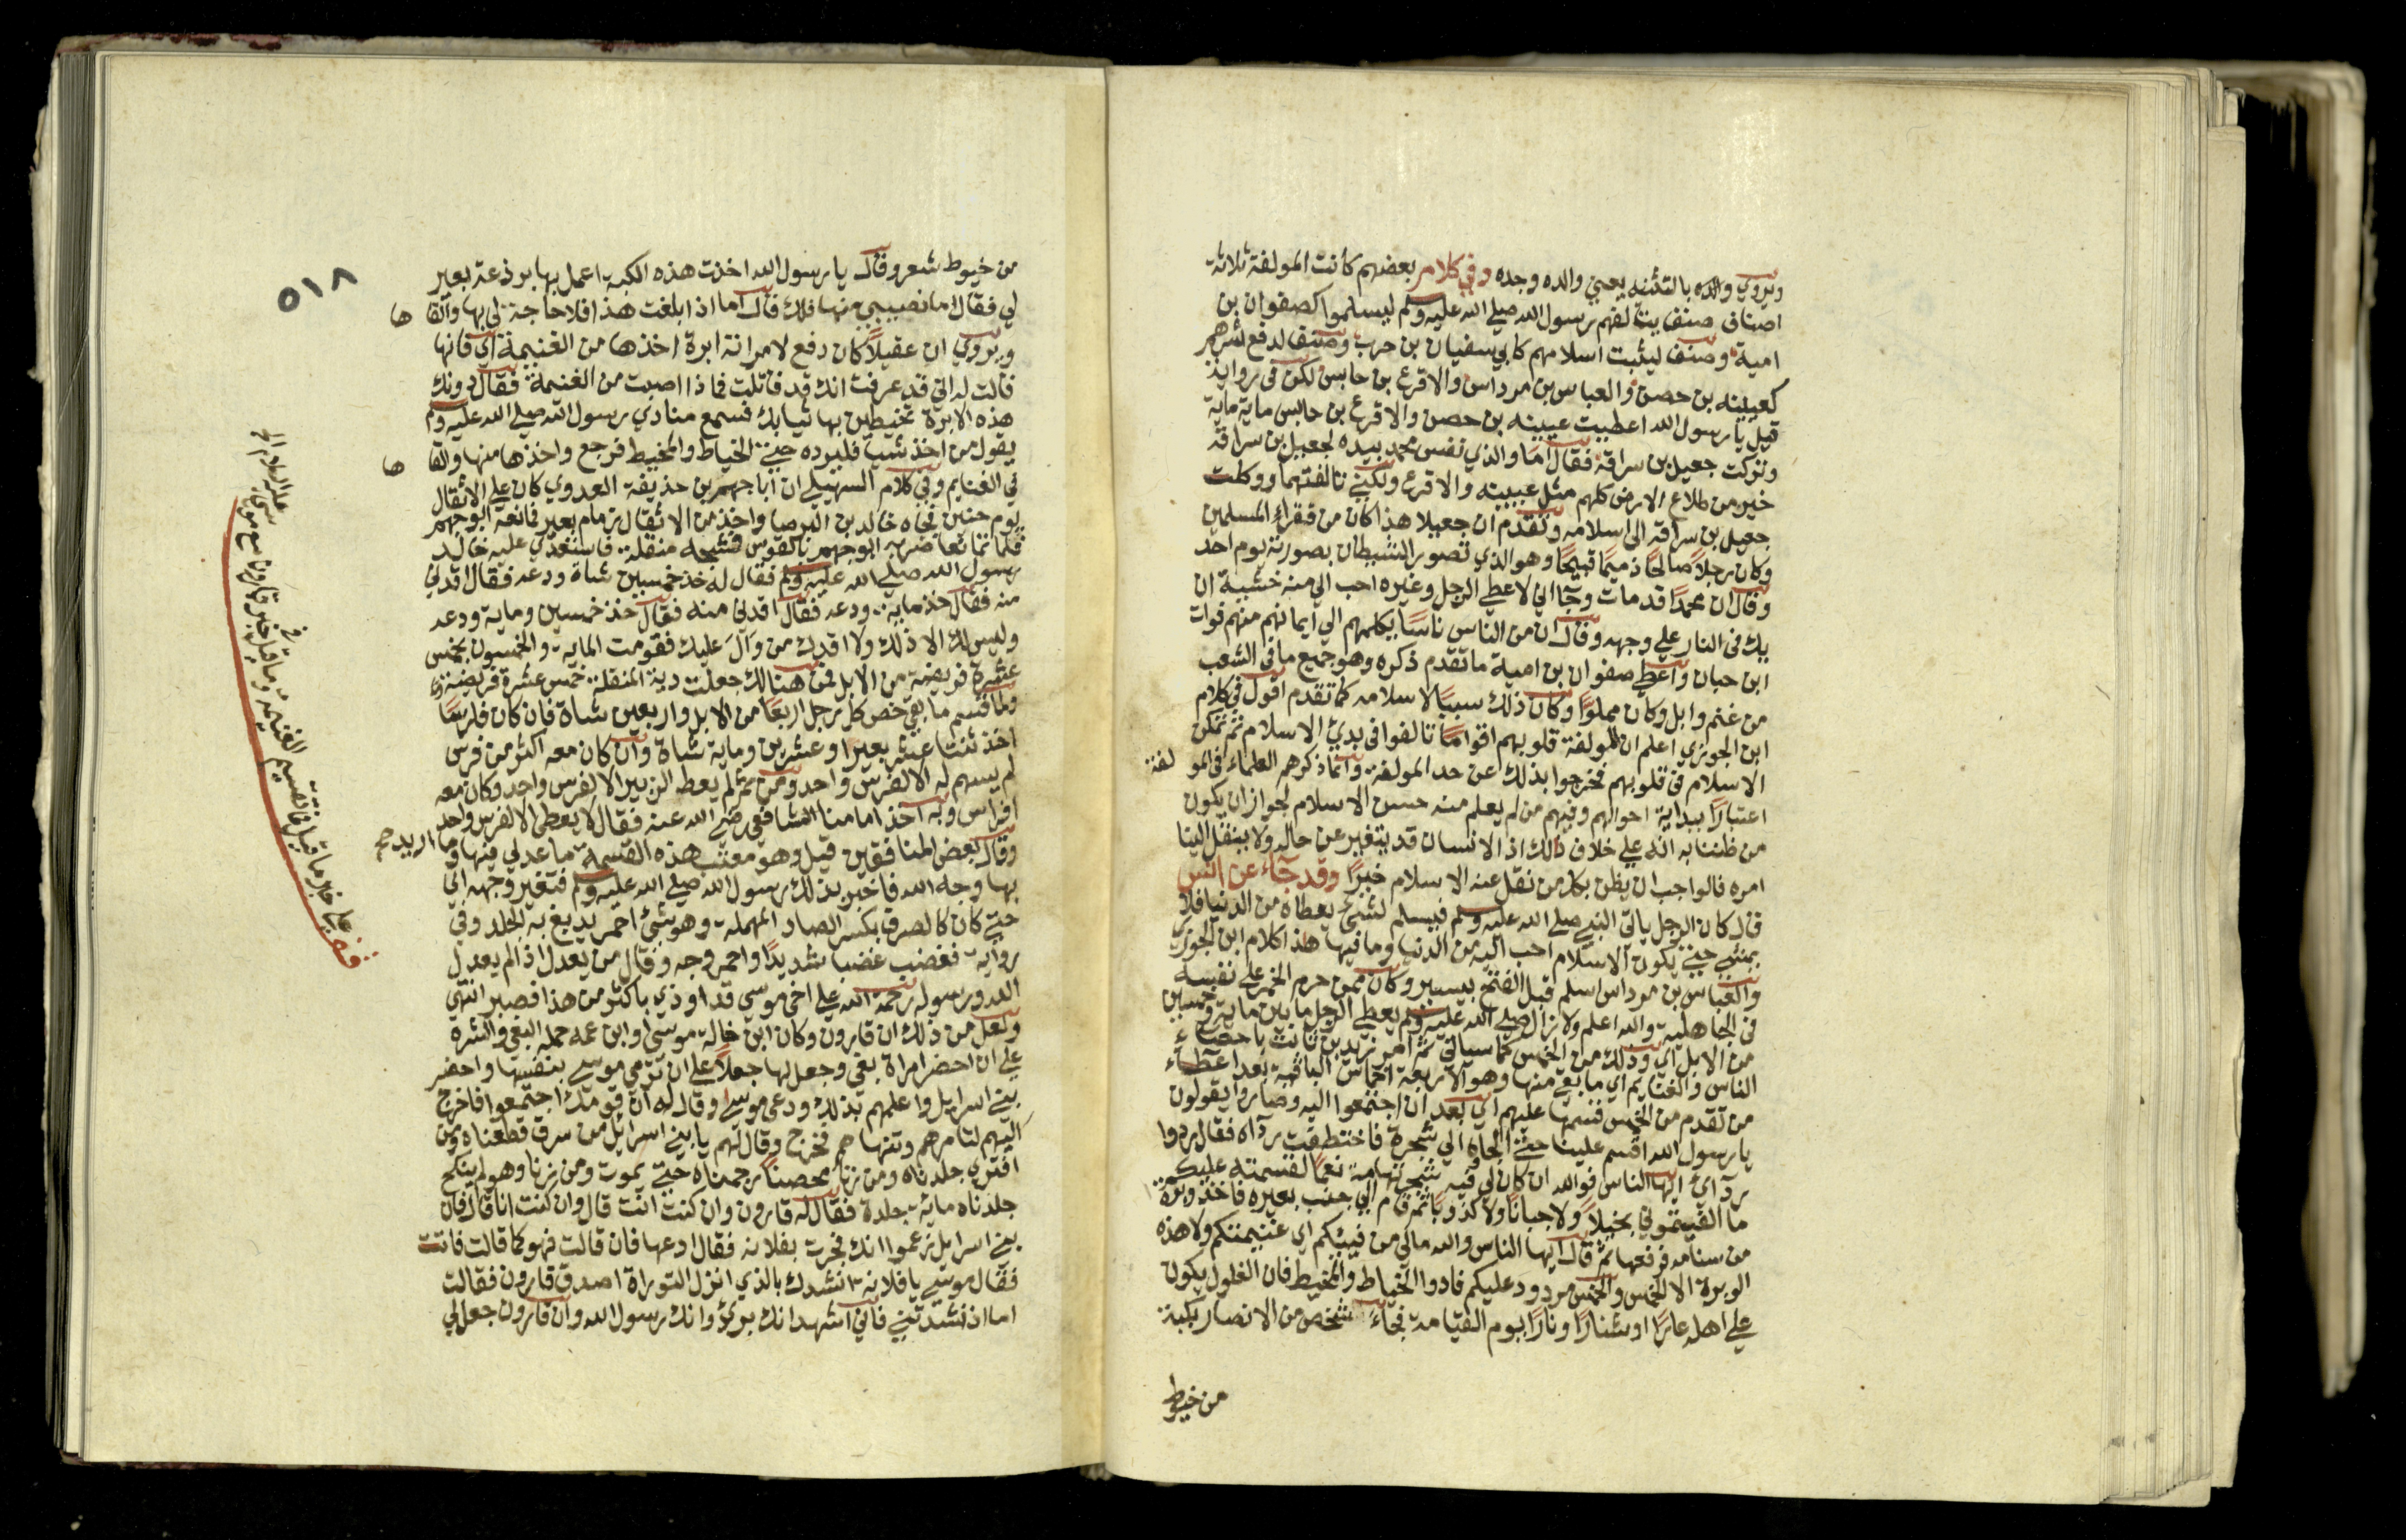 ويروي والده بالتثنيه يعني والده وجده وفي كلام بعضهم كانت المولفة ثلاثة
اصناف صنف يتالفهم رسول الله صلي الله عليه وسلم ليسلموا كصفوان بن
امية وصنف ليثبت اسلامهم كابي سفيان بن حرب وصنف لدفع شرهم
كعيينه بن حصن والعباس بن مرداس والاقرع بن حابس لكن في رواية
قيل يا رسول الله اعطيت عيينه بن حصن والاقرع بن حابس ماية ماية
وتركت جعيل بن سراقة فقال اما والذي نفس محمد بيده لجعيل بن سراقة
خير من طلاع الارض كلهم مثل عيينه والاقرع ولكني تالفتهما ووكلت
جعيل بن سراقه الى اسلامه وتقدم ان جعيلا هذا كان من فقراء المسلمين
وكان رجلا صالحا ذميما قبيحا وهو الذي تصور الشيطان بصورته يوم احد
وقال ان محمدا قد مات وجآ اني لاعطي الرجل وغيره احب الي منه خشية ان
يكب في النار علي وجهه وقال ان من الناس ناسا يكلهم الي ايمانهم منهم فرات
ابن حبان واعطي صفوان بن امية ما تقدم ذكره وهو جميع ما في الشعب
من غنم وابل وكان مملوا وكان ذلك سببا لاسلامه كما تقدم اقول في كلام
ابن الجوزي اعلم ان المولفة قلوبهم اقواما تالفوا في بدئ الاسلام ثم تمكن
الاسلام في قلوبهم فخرجوا بذلك عن حد المولفة وانما ذكرهم العلماء في المو لفة
اعتبارا ببداية احوالهم وفيهم من لم يعلم منه حسن الاسلام لجواز ان يكون
من ظننا به انه علي خلاف ذلك اذ الانسان قد يتغير عن حاله ولا ينقل الينا
امره فالواجب ان يظن بكل من نقل عنه الاسلام خيرا وقد جاء عن انس
قال كان الرجل ياتي النبي صلي الله عليه وسلم فيسلم لشئ يعطاه من الدنيا فلا
يمشي حتي يكون الاسلام احب اليه من الدنيا وما فيها هذا كلام ابن الجوزي
والعباس بن مرداس اسلم قبل الفتح بيسير وكان ممن حرم الخمر علي نفسه
في الجاهلية والله اعلم ولا زال صلي الله عليه وسلم يعطي الرجل ما بين ماية وخمسين
من الابل اي وذلك من الخمس كما سياتي ثم امر زيد بن ثابت باحصاء
الناس والغنايم اي ما بقي منها وهو الاربعة اخماس الباقية بعد اعطاء
من تقدم من الخمس فقسمها عليهم اي بعد ان اجتمعوا اليه وصاروا يقولون
يا رسول الله اقسم علينا حتي الجاه الي شجرة فاختطفت رداه فقال ردوا
ردآي ايها الناس فوالله ان كان لي فيه شجر تهامة نعما لقسمته عليكم
ما الفيتموني بخيلا ولا جبانا ولا كذوبا ثم قام الي جنب بعيره فاخذ وبرة
من سنامه فرفعها ثم قال ايها الناس والله مالي من فيئكم اي غنيمتكم ولا هذه
الوبرة الا الخمس والخمس مردود عليكم فادوا الخياط والمخيط فان الغلول يكون
علي اهله عارا وشنارا ونارا يوم القيامة فجاء شخص من الانصار بكبة
من خيوط
٥١٨
من خيوط شعر وقال يا رسول الله اخذت هذه الكبة اعمل بها برذعة بعير
لي فقال اما نصيبي منها فلك قال اما اذا بلغت هذا فلا حاجة لي بها والقا ها
ويروي ان عقيلا كان دفع لامراته ابرة اخذها من الغنيمة اي فانها
قالت له اني قد عرفت انك قد قاتلت فماذا اصبت من الغنيمة فقال دونك
هذه الابرة تخيطين بها ثيابك فسمع منادي رسول الله صلي الله عليه وسلم
يقول من اخذ شيا فليرده حتي الخياط والمخيط فرجع واخذها منها والقا ها
في الغنايم وفي كلام السهيلي ان ابا جهم بن حذيفة العدوي كان علي الانفال
يوم حنين فجاه خالد بن البرصا واخذ من الانفال زمام بعير فمانعه ابو جهم
فلما تمانعا ضربه ابو جهم بالقوس فشجه منقلة فاستعدي عليه خالد
رسول الله صلي الله عليه وسلم فقال له خذ خمسين شاة ودعه فقال اقدني
منه فقال خذ ماية ودعه فقال اقدني منه فقال خذ خمسين وماية ودعه
وليس لك الا ذلك ولا اقدك من وال عليك فقومت الماية والخمسون بخمس
عشرة فريضة من الابل فمن هنالك جعلت دية المنقلة خمس عشرة فريضة
ولما قسم ما بقي خص كل رجل اربعا من الابل واربعين شاة فان كان فارسا
اخذ ثنتا عشر بعيرا وعشرين وماية شاة وان كان معه اكثر من فرس
لم يسهم له الا لفرس واحد ومن ثم لم يعط الزبير الا لفرس واحد وكان معه
افراس وبه اخذ امامنا الشافعي رضي الله عنه فقال لا يعطي الا لفرس واحد
وقال بعض المنافقين قيل وهو معتب هذه القسمة ما عدل فيها وما اريد
بها وجه الله فاخبر بذلك رسول الله صلي الله عليه وسلم فتغير وجهه اي
حتي كان كالصرف بكسر الصاد المهملة وهو شئ احمر يدبغ به الجلد وفي
رواية فغضب غضبا شديدا واحمر وجهه وقال من يعدل اذا لم يعدل
الله ورسوله رحمة الله علي اخي موسي قد اوذي باكثر من هذا فصبر انتهي
ولعل من ذلك ان قارون وكان ابن خالة موسي او ابن عمه حمله البغي والشره
علي ان احضر امراة بغي وجعل لها جعلا علي ان ترمي موسي بنفسها واحضر
بني اسرايل واعلمهم بذلك ودعي موسي وقال له ان قومك اجتمعوا فاخرج
اليهم لتامرهم وتنهاهم فخرج وقال لهم يا بني اسرايل من سرق قطعناه ومن
افتري جلدناه ومن زنا محصنا رجمناه حتي يموت ومن زنا وهو لم ينكح
جلدناه ماية جلدة فقال له قارون وان كنت انت قال وان كنت انا قال فان
بني اسرايل زعموا انك فجرت بفلانه فقال ادعها فان قالت فهو كما قالت فاتت
فقال موسي يا فلانة انشدك بالذي انزل التوراة اصدق قارون فقالت
اما اذ نشدتني فاني اشهد انك بري وانك رسول الله وان قارون جعل لي